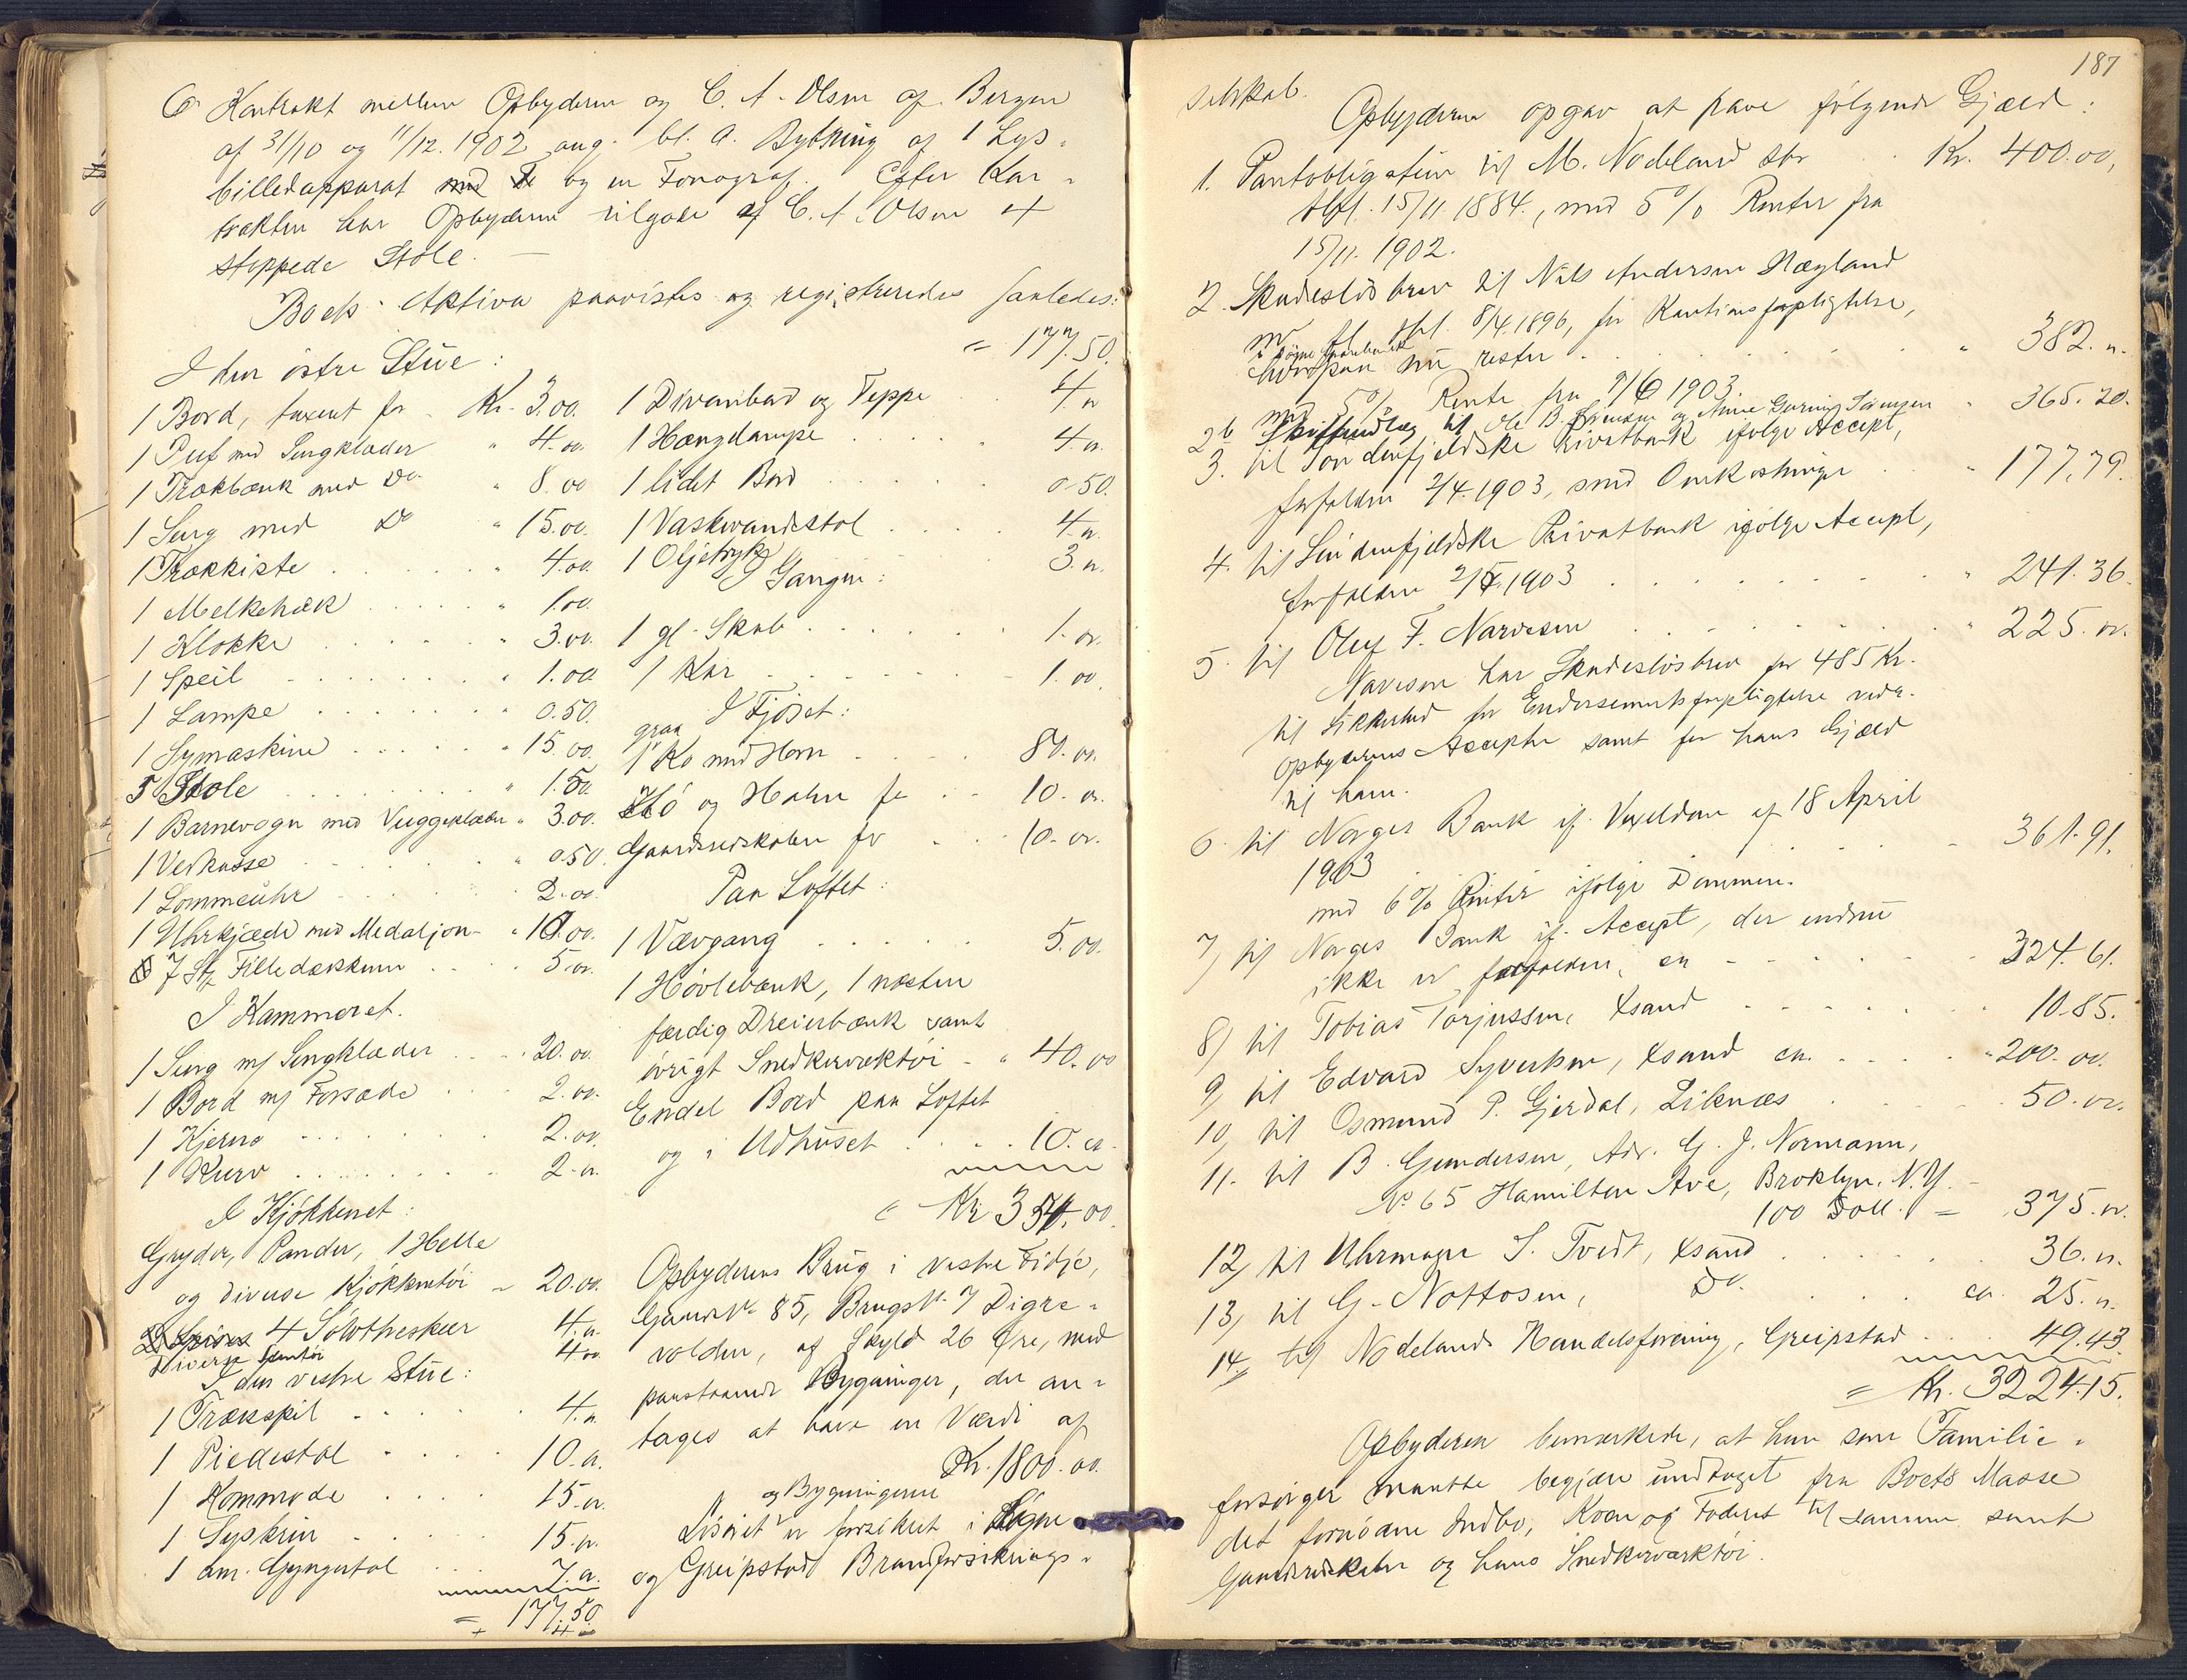 6. Kontrakt mellem Opbyderen og C. A. Olsen af Bergen
af 31/10 og 11/12. 1902 ang. bl. a. Bytning af 1 Lys-
billedapparat og en Fonograf. Efter Kon-
trakten har Opbyderen tilgode af C. A. Olsen 4
stoppede Stole. —
Boets Aktiva paavistes og registreredes saaledes:
I den østre Stue:
1 Bord, taxeret for Kr. 3.00.
1 Puf med Sengklæder " 4.00.
1 Trækbænk med Do " 8.00
1 Seng med Do " 15.00.
1 Trækkiste " 4.00.
1 Melkehæk " 1.00.
1 Klokke " 3.00.
1 Speil " 1.00
1 Lampe " 0.50.
1 Symaskine " 15.00.
5 Stole " 1.50.
1 Barnevogn med Vuggeklæder " 3.00.
1 Vedkasse " 0.50.
1 Lommeuhr 2.00.
1 Uhrkjæde med Medaljon " 10.00.
7 Stk. Filledækkener 5.00.
I Kammeret.
1 Seng m/ Sengklæder 20.00.
1 Bord m/ Forsæde 2.00.
1 Kjerne 2.00.
1 Kurv 2.00.
I Kjøkkenet:
Gryder, Pander, 1 Helle
og diverse Kjøkkentøi 20.00.
4 Sølvtheskeer 4.00.
Diverse 4.00
I den vestre Stue:
1 Trækspil 4.00
1 Piedestal 10.00.
1 Kommode 15.00.
1 Syskrin 15.00.
1 am. Gyngestol 7.00.
= 177.50.
= 177.50.
1 Divanbord og Teppe 4.00
1 Hængelampe 4.00.
1 lidet Bord 0.50.
1 Vaskevandsstol 4.00.
1 Oljetryk 3.00.
I Gangen:
1 gl. Skab 1.00.
1 Kar 1.00.
I Fjøset:
1 graa Ko med Horn 80.00.
og Hakn for 10.00.
Gaardsredskaber for 10.00.
Paa Loftet:
1 Vævgang 5.00.
1 Høvlebænk, 1 næsten
færdig Dreierbænk samt
øvrigt Snedkerværktøi " 40.00
Endel Bord paa Loftet
og i Udhuset 10.00.
Kr 354.00
Opbyderens Brug i vestre Fidje,
Gaards No 85, Brugs No 7 Digre-
volden, af Skyld 26 Øre, med
paastaaende Bygninger, der an-
tages at have en Værdi af
Kr. 1800.00.
Løsøret og Bygningerne er forsikret i Søgne
og Greipstad Brandforsikrings-
187
selskab.
Opbyderen opgav at have følgende Gjæld:
1. Pantobligation til M. Nodeland stor Kr. 400.00,
tbl. 15/11. 1884., med 5 % Renter fra
15/11. 1902.
2. Skadesløsbrev til Nils Andersen Hægland
m. fl. tbl. 8/4. 1896, for Kautionsforpligtelse,
i Søgne Sparebank hvorpaa nu rester " 382.00.
med 5 % Rente fra 9/6 1903.
2b Skifteudlæg til Ole B. Sørensen og Anne Gurine Sørensen " 365.20.
3. til Søndenfjeldske Privatbank ifølge Accept,
forfalden 2/4. 1903, med Omkostninger " 177.79.
4. til Søndenfjeldske Privatbank ifølge Accept,
forfalden 2/5. 1903 " 241.36.
5. til Oluf F. Narvesen " 225.00.
Narvesen har Skadesløsbrev for 485 Kr.
til Sikkerhed for Endossementsforpligtelse vedr.
Opbyderens Accepter samt for hans Gjæld
til ham.
6. til Norges Bank if. Vexeldom af 18 April
1903 361.91.
med 6 % Renter ifølge Dommen.
7) til Norges Bank if. Accept, der endnu
ikke er forfalden, ca 324.61.
8) til Tobias Torjussen, Xsand 10.85.
9) til Edvard Syvertsen, Xsand ca. " 200.00.
10) til Osmund P. Gjerdal, Liknæs 50.00.
11. til B. Gundersen, Adr. G. J. Normann,
No 65 Hamilton Ave, Broklyn. N.Y.
100 Doll. = 375.00.
12) til Uhrmager S. Tvedt, Xsand 36.00.
13) til G. Nottosen, Do. ca. 25.00.
14) til Nodelands Handelsforening, Greipstad 49.43.
= Kr. 3224.15.
Opbyderen bemærkede, at han som Familie-
forsørger maatte begjære undtaget fra Boets Masse
det fornødne Indbo, Koen og Foderet til samme samt
Gaardsredskaber og hans Snedkerværktøi.